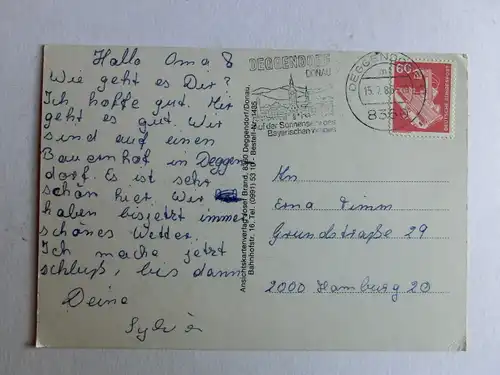 Hallo Oma 8
Wie geht es Dir?
Ich hoffe gut. Mir
geht es gut. Wir
sind auf einen
Bauernhof in Deggen
dorf. Es ist sehr
schön hier. Wir
haben bisjetzt immer
schönes Wetter.
Ich mache jetzt
schluß, bis dann
Deine
Sylvia
Ansichtskartenverlag Josef Brand, 8360 Deggendorf/Donau,
Bahnhofstr. 16, Tel. (0991) 53 10 - Bestell-Nr. 1485
DEGGENDORF
DONAU
Auf der Sonnenseite des
Bayerischen Waldes
DEGGENDORF
15.7.8
8360
60
DEUTSCHE BUNDESPOST
An
Erna Timm
Grundstraße 29
2000 Hamburg 20